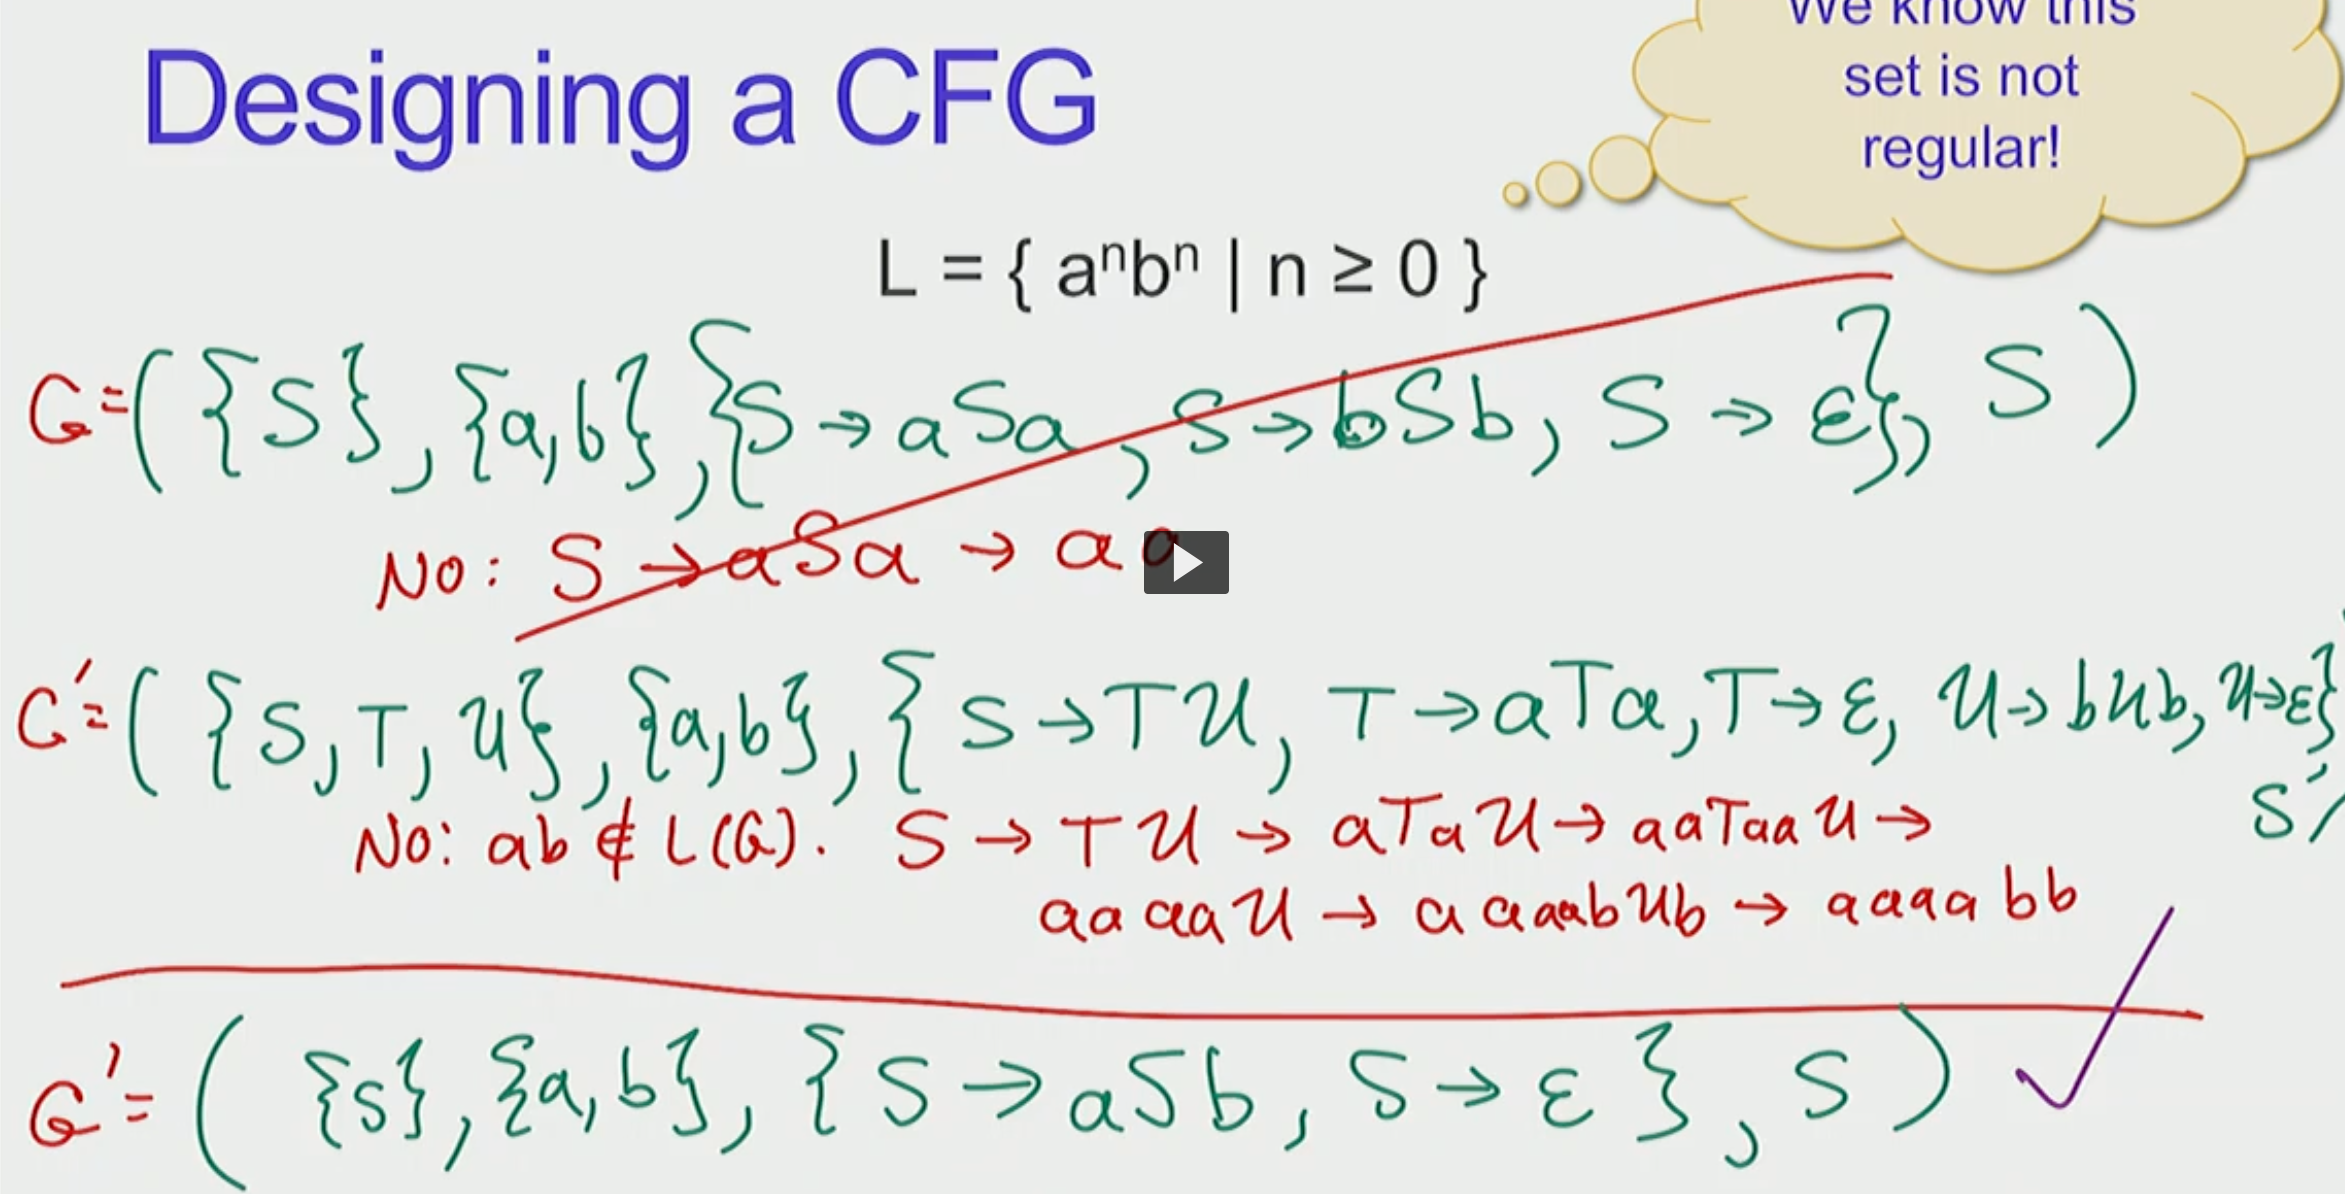 We know this
set is not
regular!
Designing a CFG
L = { aⁿbⁿ | n ≥ 0 }
G = ( {S}, {a,b}, {S → aSa, S → bSb, S → ε}, S )
No: S → aSa → aa
G' = ( {S, T, U}, {a,b}, { S → TU, T → aTa, T → ε, U → bUb, U → ε},
S )
No: ab ∉ L(G). S → TU → aTaU → aaTaaU →
aaaaU → aaaabUb → aaaabb
G' = ( {S}, {a,b}, { S → aSb, S → ε }, S ) ✓